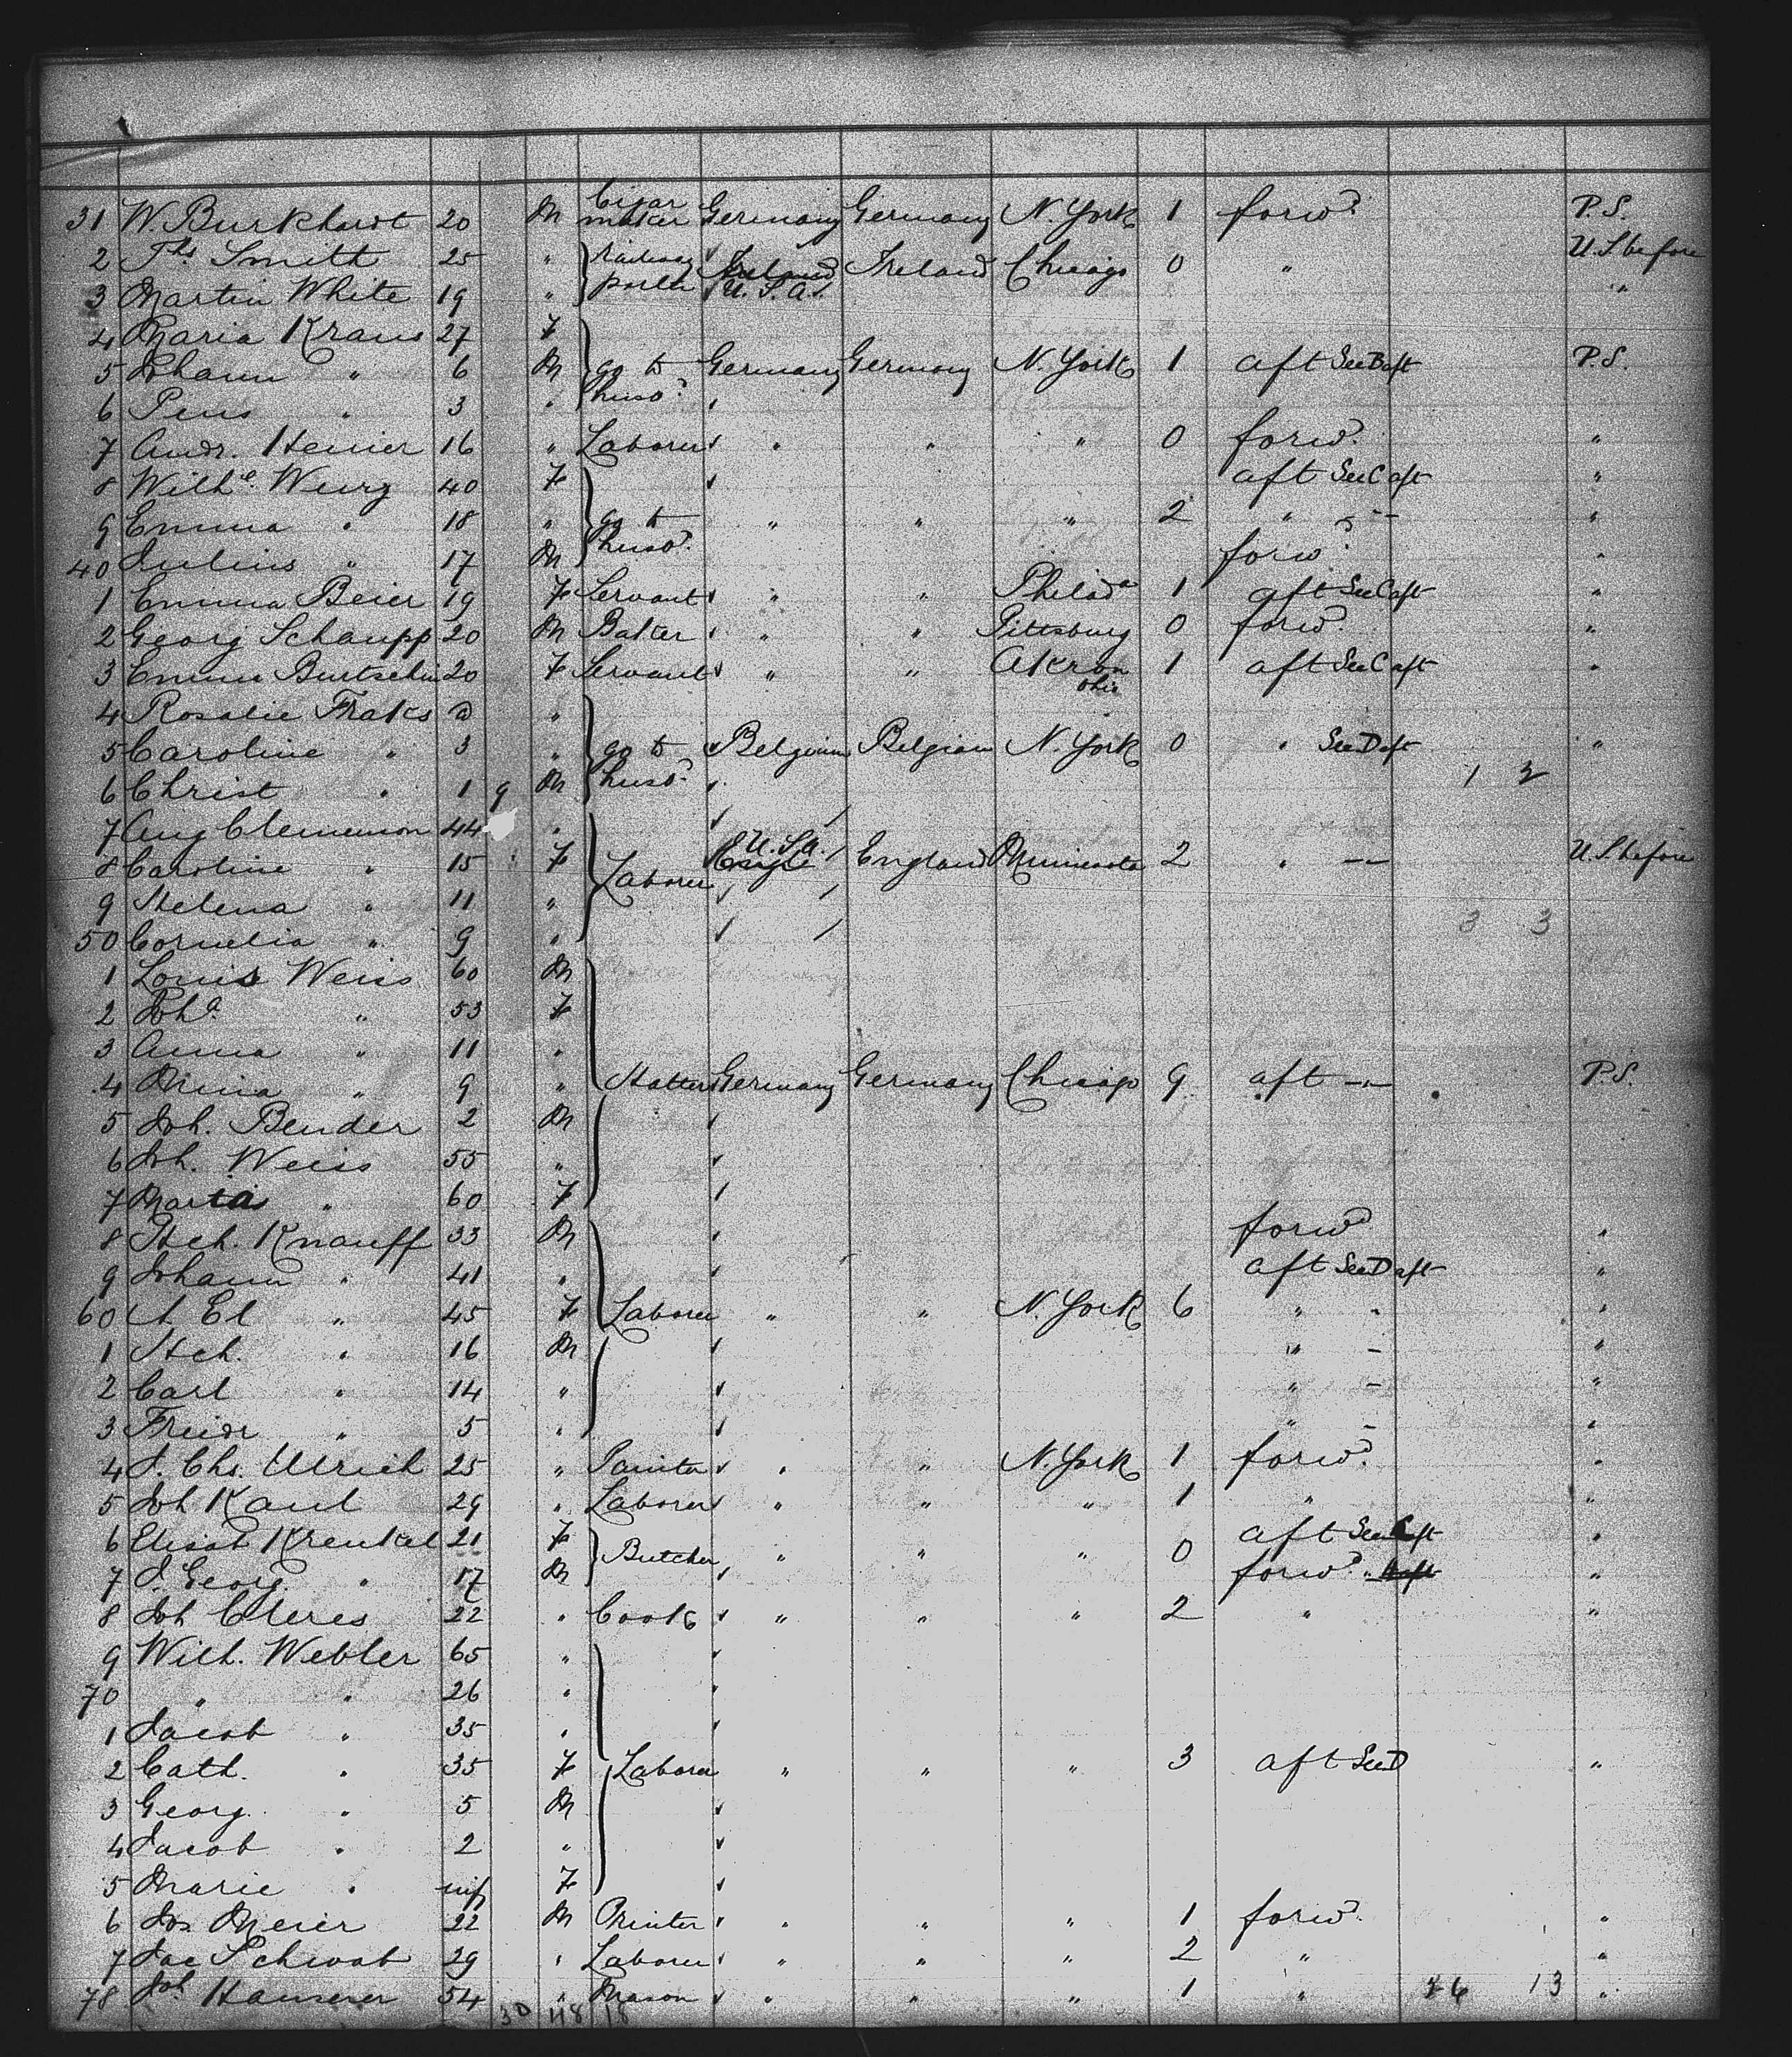 31 W. Burkhardt 20 M Cigar maker Germany Germany N. York 1 forwd. P.S.
2 Ths. Smith 25 " Railway porter Ireland U.S.A. Ireland Chicago 0 " U.S. before
3 Martin White 19 " "
4 Maria Kraus 27 F
5 Johann " 6 M go to husbd. Germany Germany N. York 1 aft SeeB aft P.S.
6 Pius " 3 "
7 Andr. Henier 16 " Laborer " " " 0 forwd. "
8 Wilhe. Weurg 40 F aft SeeC aft "
9 Emma " 18 " go to husbd. " " " 2 " "
40 Julius " 17 M forwd. "
1 Emma Beier 19 F Servant " " Philada 1 aft SeeC aft "
2 Georg Schaupp 20 M Baker " " Pittsburg 0 forwd. "
3 Emma Burtschin 20 F Servant " " Akron Ohio 1 aft SeeC aft "
4 Rosalie Fraks "
5 Caroline " 3 " go to husbd. Belgium Belgian N. York 0 " SeeD aft "
6 Christ " 1 9 M 1 2
7 Aug Clemenson 44 "
8 Caroline " 15 F Laborer U.S.A. England Minnesota 2 " -"- U.S. before
9 Helena " 11 " 3 3
50 Cornelia " 9 "
1 Louis Weiss 60 M
2 Joha. " 53 F
3 Anna " 11 "
4 Mina " 9 " Hatter Germany Germany Chicago 9 aft -"- P.S.
5 Joh. Bender 2 M
6 Joh. Weiss 55 "
7 Maria " 60 F
8 Hch. Knauff 33 M forwd "
9 Johann " 41 " aft SeeD aft "
60 A El " 45 F Laborer " " N. York 6 " " "
1 Hch. " 16 M " - "
2 Carl " 14 " " - "
3 Friedr " 5 " " - "
4 J. Chs. Ulrich 25 " Painter " " N. York 1 forwd. "
5 Joh Kaul 29 " Laborer " " " 1 " "
6 Elisab Krenkel 21 F Butcher " " " 0 aft SeeC aft "
7 J. Georg. " 17 M forwd. "
8 Joh Cleres 22 " Cook " " " 2 " "
9 Wilh. Webler 65 "
70 " " 26 "
1 Jacob " 35 "
2 Cath. " 35 F Laborer " " " 3 aft SeeD "
3 Georg. " 5 M
4 Jacob " 2 "
5 Marie " inf F
6 Jos Meier 22 M Printer " " " 1 forwd. "
7 Jac Schwab 29 " Laborer " " " 2 " "
78 Joh Hauserer 54 " Mason " " " 1 " 26 13 "
30 48 18